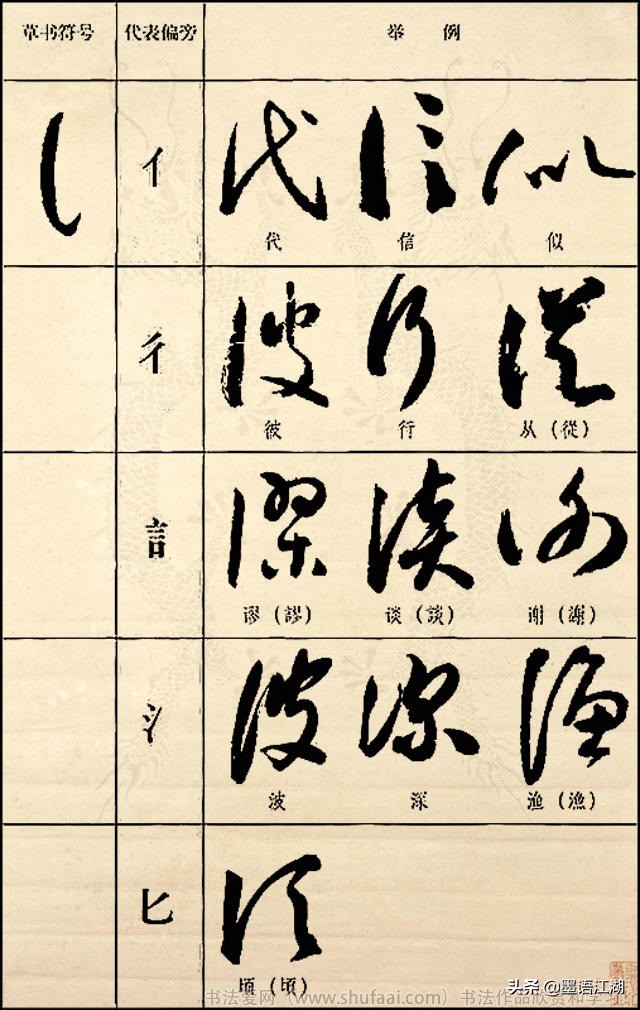 草书符号 代表偏旁 举例
亻 代 信 似
代 信 似
彳 彼 行 從
彼 行 从（從）
言 謬 談 謝
谬（謬） 谈（談） 谢（謝）
氵 波 深 漁
波 深 渔（漁）
匕 頃
顷（頃）
头条 @墨语江湖
书法爱网（www.shufaai.com）书法作品欣赏和学习的